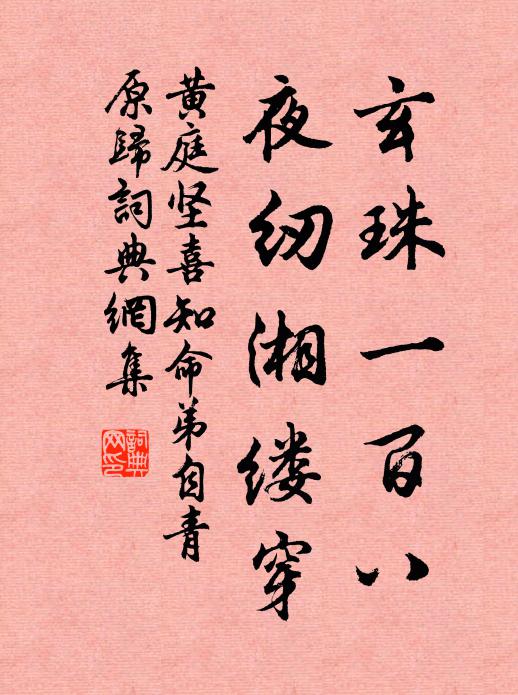 玄珠一百八
夜纫湘缕穿
黄庭坚喜知命弟自青
原歸詞典網集
詞典
网印